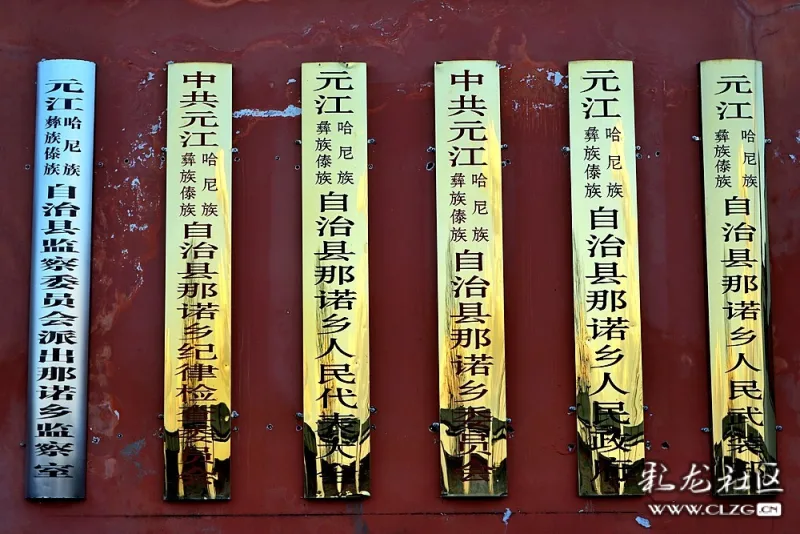 元江
哈尼族
彝族傣族
自治县监察委员会派出那诺乡监察室
中共元江
哈尼族
彝族傣族
自治县那诺乡纪律检查委员会
元江
哈尼族
彝族傣族
自治县那诺乡人民代表大会
中共元江
哈尼族
彝族傣族
自治县那诺乡委员会
元江
哈尼族
彝族傣族
自治县那诺乡人民政府
元江
哈尼族
彝族傣族
自治县那诺乡人民武装部
彩龙社区
WWW.CLZG.CN